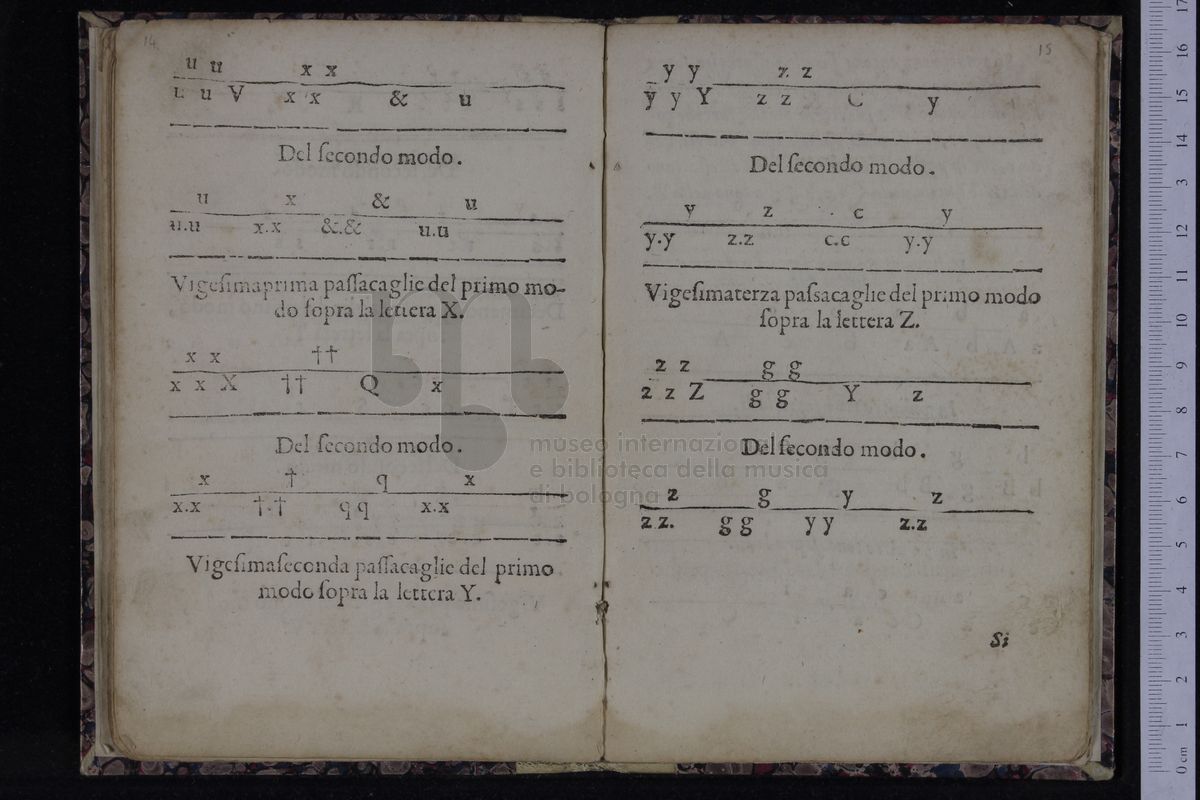 14
u u x x
u u V x x & u
Del ſecondo modo.
u x & u
u.u x.x &.& u.u
Vigeſimaprima paſſacaglie del primo mo-
do ſopra la lettera X.
x x ††
x x X †† Q x
Del ſecondo modo.
x † q x
x.x †.† q q x.x
Vigeſimaſeconda paſſacaglie del primo
modo ſopra la lettera Y.
15
y y z z
y y Y z z C y
Del ſecondo modo.
y z c y
y.y z.z c.c y.y
Vigeſimaterza paſsacaglie del primo modo
ſopra la lettera Z.
z z g g
z z Z g g Y z
Del ſecondo modo.
z g y z
z z. g g y y z.z
Si
museo internazionale
e biblioteca della musica
di bologna
17
16
15
14
3
12
11
10
9
8
7
6
5
4
3
2
1
0 cm